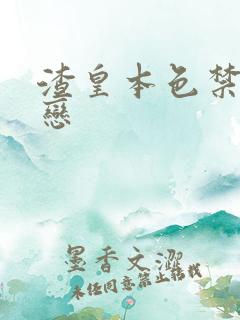 渣皇本色禁
戀
墨香文澀
未经同意禁止转载